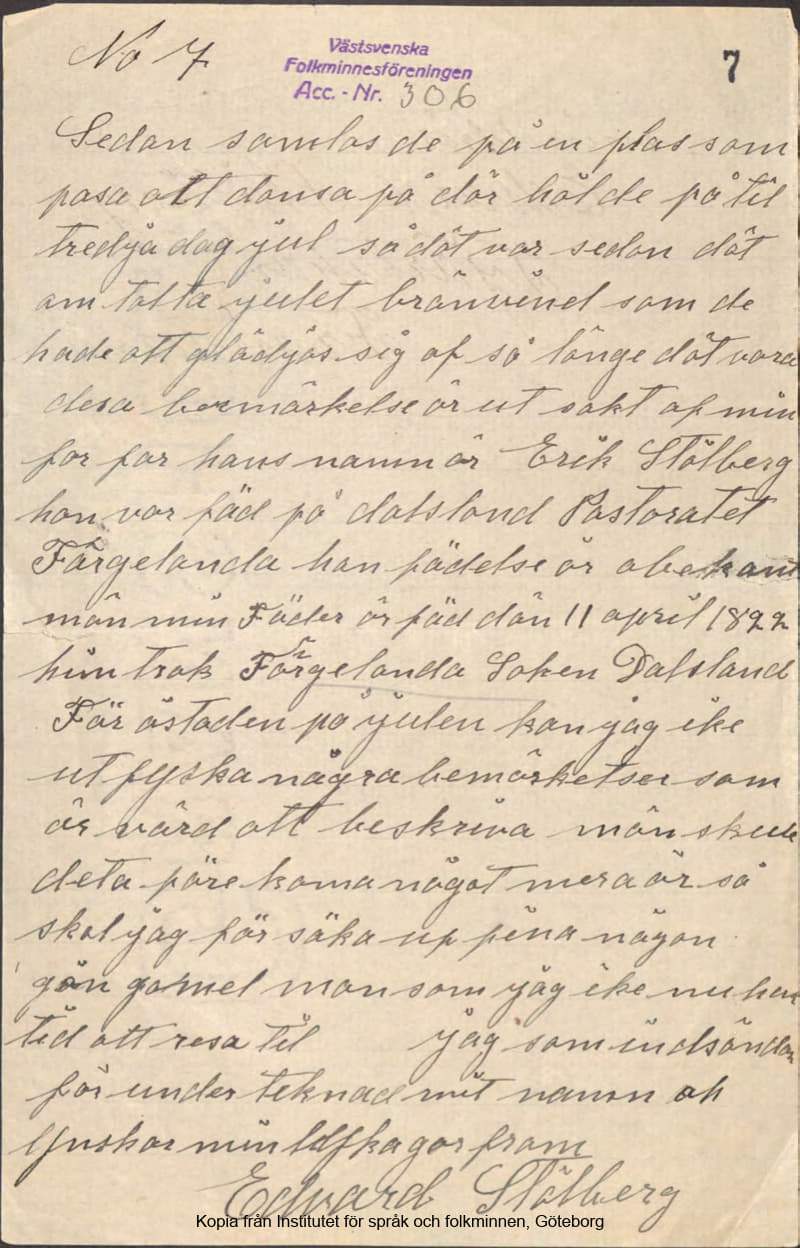 No 7
Västsvenska
Folkminnesföreningen
Acc. - Nr. 306
7
Sedan samlas de på en plas som
pasa att dansa på där höl de på til
tredja dag jul så dät var sedan dät
om talta julet bränvinel som de
hade att glädjas sig af så länge dät vara
desa bermärkelse är ut sakt af min
for far hans namn är Erik Stålberg
han var fäd på dalsland Pastoratet
Färgelanda han fädelse år obekant
män min Fäder är fäd dän 11 april 1822
Färgelanda Soken Dalsland
För åstaden på julen kan jag ike
ut fyska några bemärketser som
är värd att beskriva män skule
deta päre koma något mera är så
skal jag för säka up pina någon
gamel man som jag ike nu har
tid att resa til jag som indsändar
får under teknad mit namn ok
ljnskar min from
Edvard Stålberg
Kopia från Institutet för språk och folkminnen, Göteborg